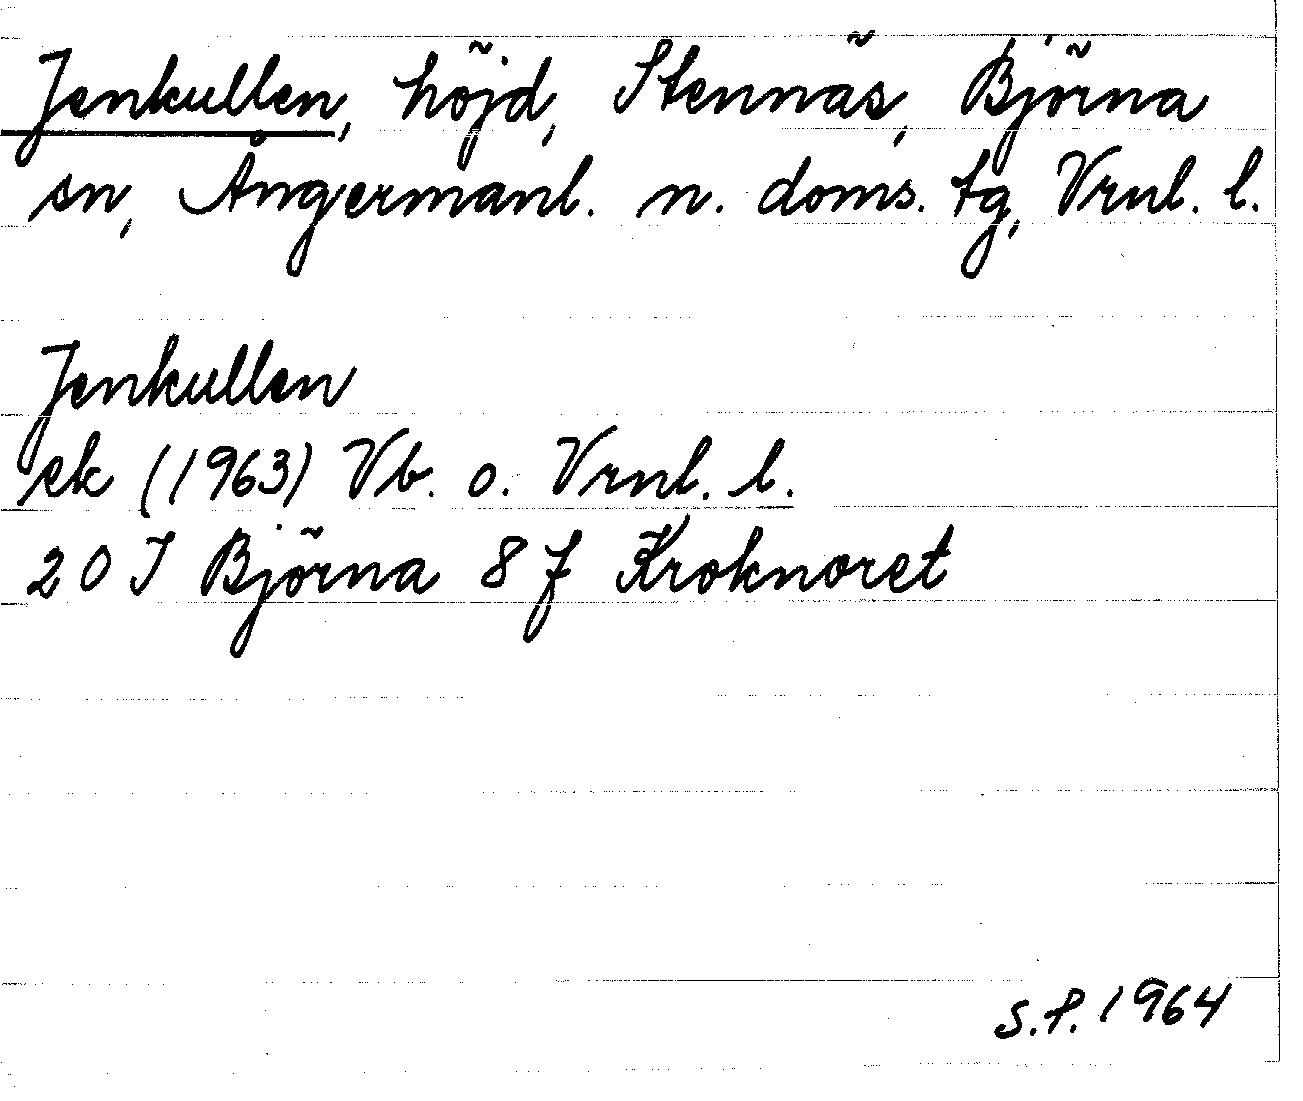 Jenkullen, höjd, Stennäs, Björna
sn, Ångermanl. n. doms. tg, Vrnl. l.
Jenkullen
ek (1963) Vb. o. Vrnl. l.
20 J Björna 8 f Kroknoret
S.P. 1964